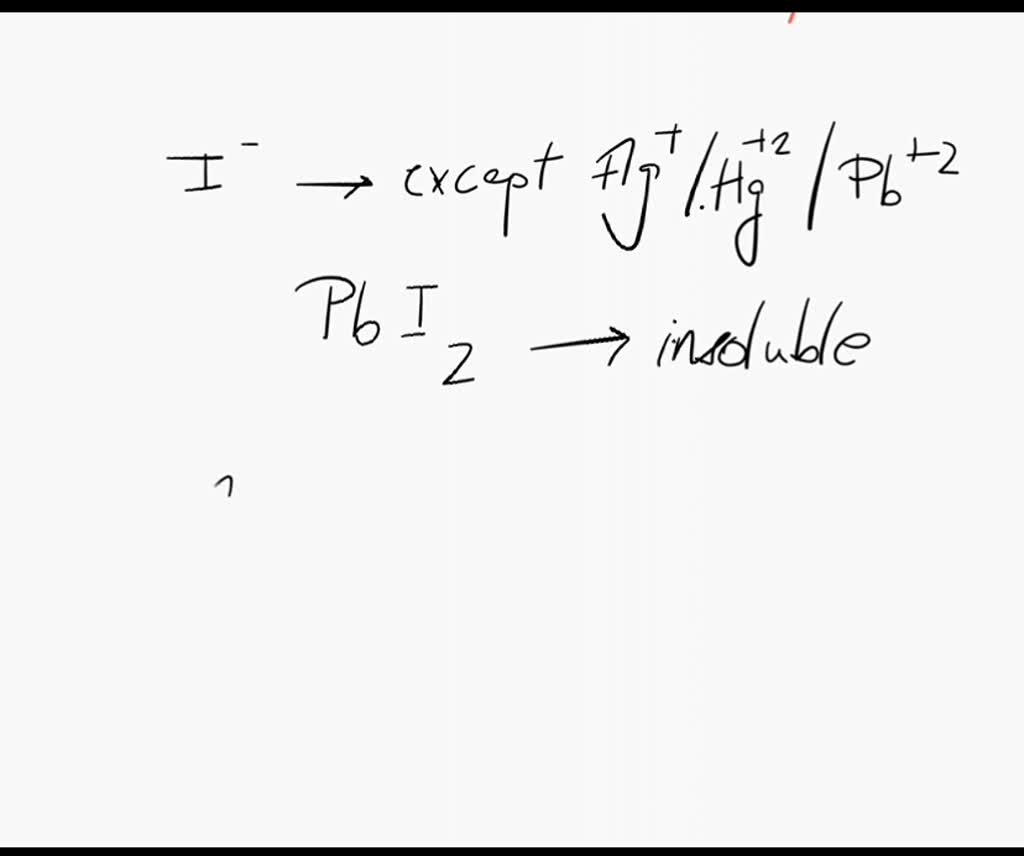 I⁻ → except Ag⁺/Hg⁺²/Pb⁺²
PbI₂ → insoluble